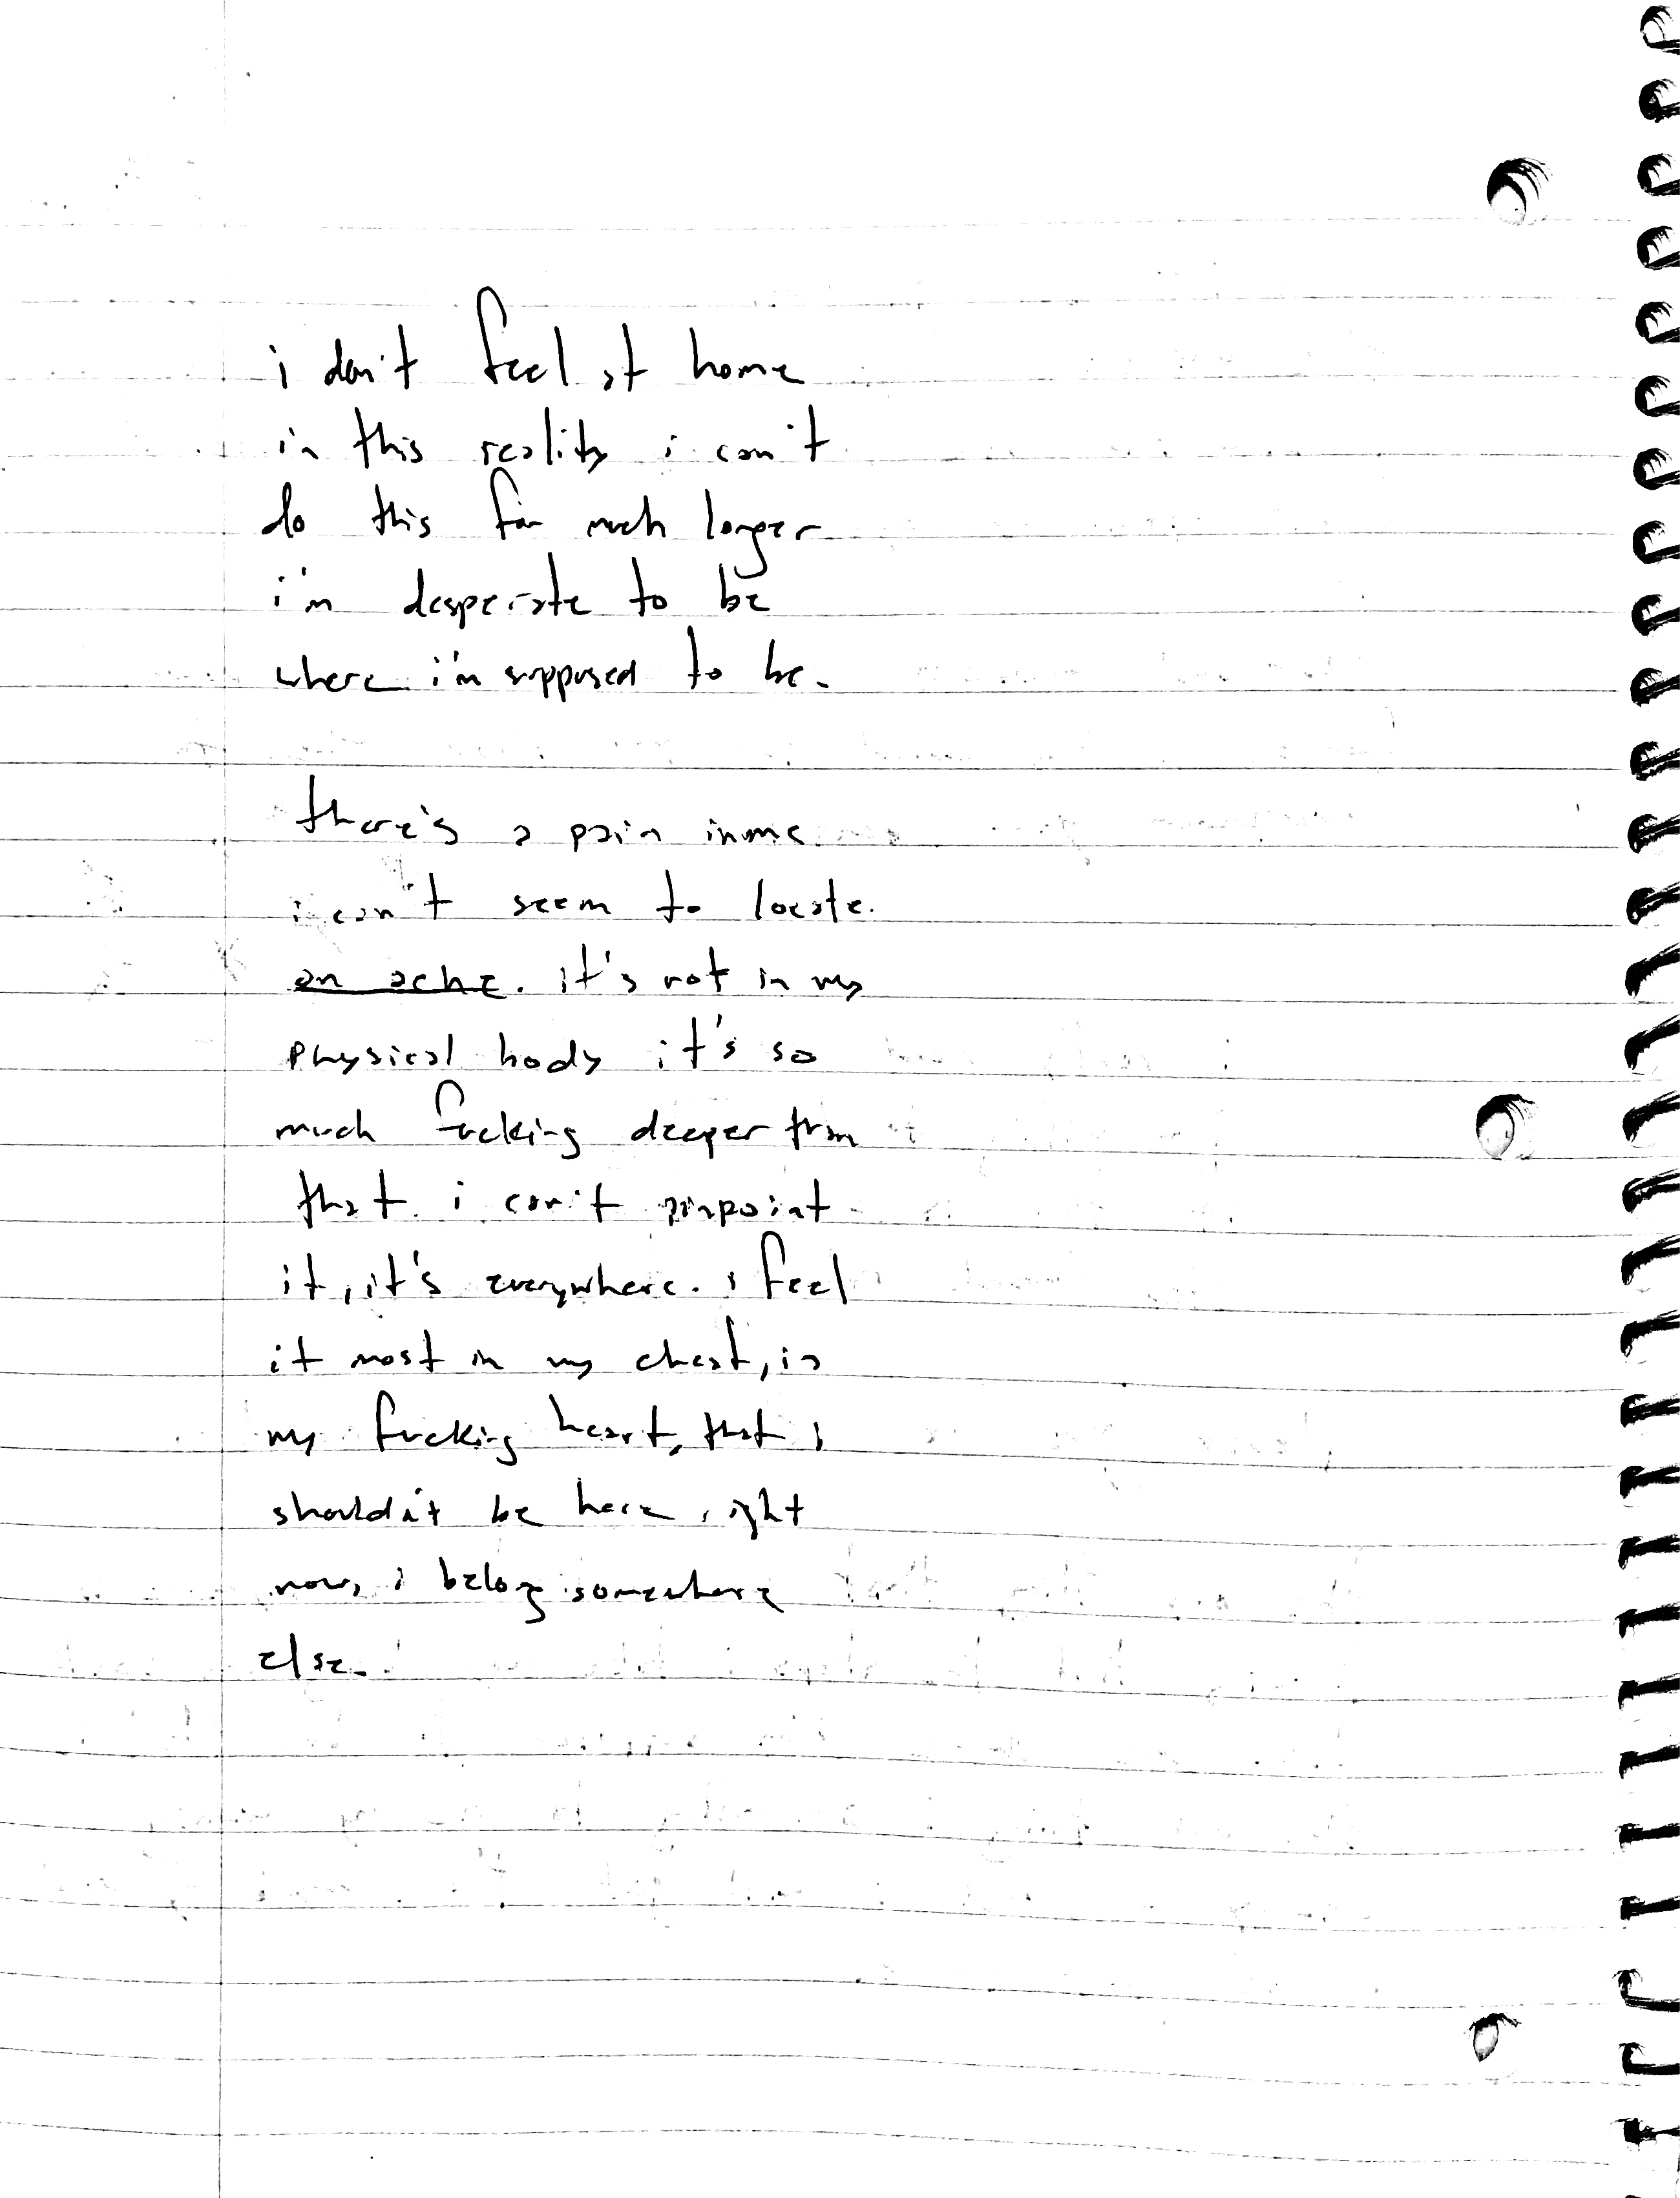 i don't feel at home
in this reality i can't
do this for much longer
i'm desperate to be
where i'm supposed to be.
there's a pain in me
i can't seem to locate.
an ache. it's not in my
physical body it's so
much fucking deeper than
that. i can't pinpoint
it, it's everywhere. i feel
it most in my chest, in
my fucking heart, that i
shouldn't be here right
now, i belong somewhere
else.